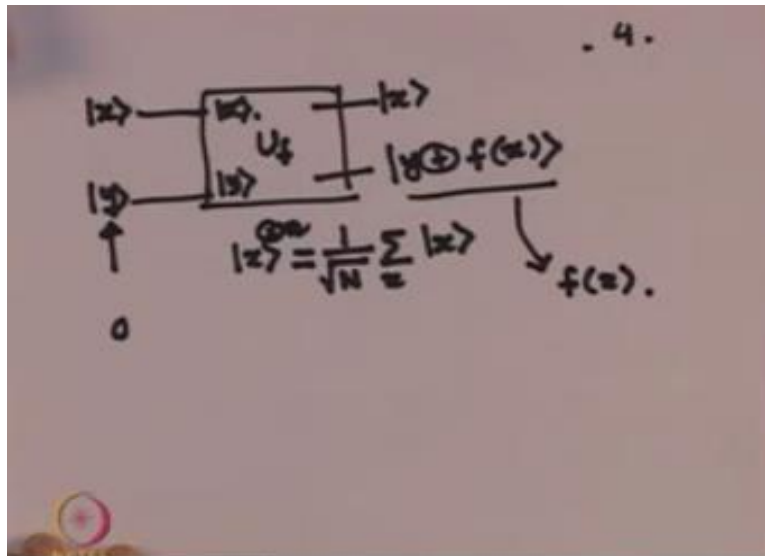 . 4 .
|x> |x>. |x>
U_f
|y> |y> |y ⊕ f(x)>
|x>^{⊗n} = 1/√N Σ_x |x>
f(x).
0